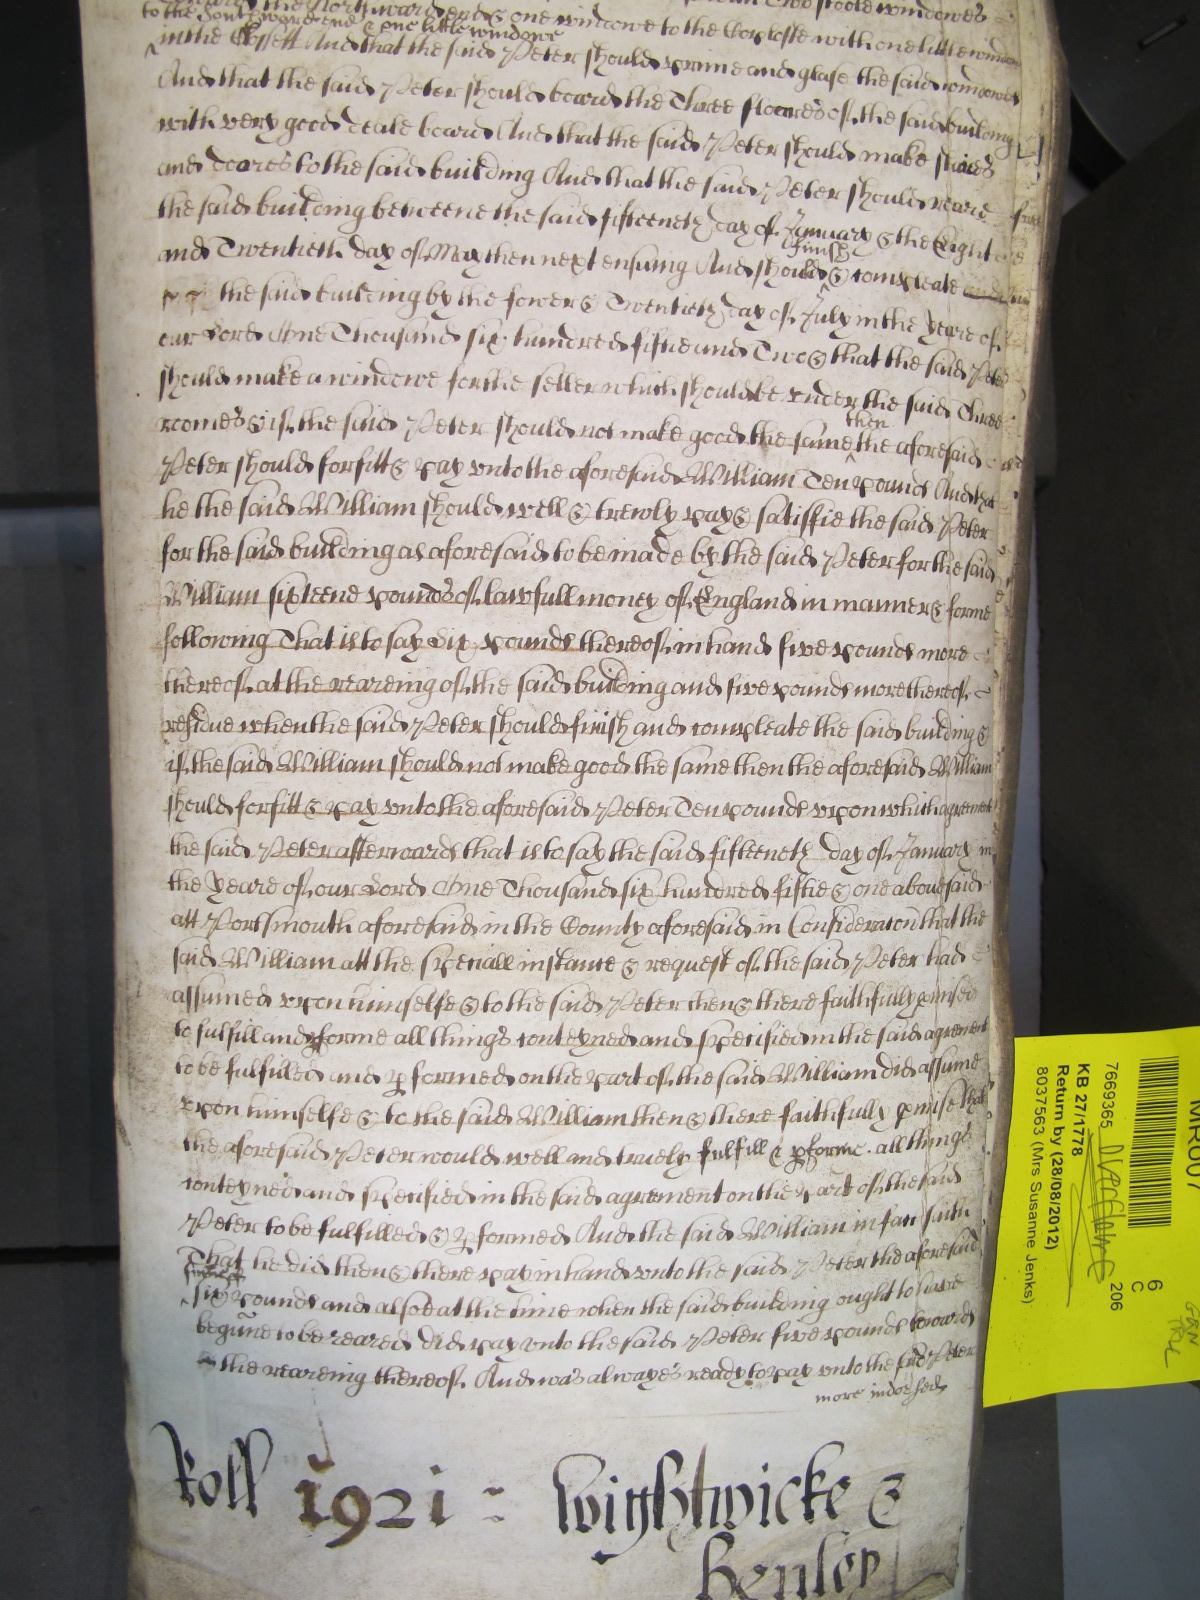 to the Northward end & one windowe to the Coploste with one little windowe
to the Southward end & one little windowe
in the Clossett And that the said Peter should prime and glase the said windowes
And that the said Peter should board the Three floores of the said building
with very good deale board And that the said Peter should make staires
and doores to the said building And that the said Peter should reare
the said building betweene the said fifteeneth day of January & the Eight
and Twentieth day of May then next ensuing And should finish & compleate
the said building by the fower & Twentieth day of July in the yeare of
our Lord One Thousand six hundred fiftie and Two & that the said Peter
should make a windowe for the seller which should be under the said Three
roomes & if the said Peter should not make good the same then the aforesaid
Peter should forfitt & pay unto the aforesaid William Ten pounds And that
he the said William should well & trewly pay & satisfie the said Peter
for the said building as aforesaid to be made by the said Peter for the said
William sixteene pounds of lawfull money of England in manner & forme
following That is to say six pounds thereof in hand five pounds more
thereof at the reareing of the said building and five pounds more thereof
residue when the said Peter should finish and compleate the said building &
if the said William should not make good the same then the aforesaid William
should forfitt & pay unto the aforesaid Peter Ten pounds upon which agreement
the said Peter afterwards that is to say the said fifteeneth day of January in
the yeare of our Lord One Thousand six hundred fiftie & one abovesaid
att Portsmouth aforesaid in the County aforesaid in Consideracon that the
said William att the speciall instance & request of the said Peter had
assumed upon himselfe & to the said Peter then & there faithfully pmised
to fulfill and pforme all things conteyned and specified in the said agreement
to be fulfilled and pformed on the part of the said William did assume
upon himselfe & to the said William then & there faithfully pmise that
the aforesaid Peter would well and truely fulfill & pforme all things
conteyned and specified in the said agreement on the part of the said
Peter to be fulfilled & pformed And the said William in fact saith
That he did then & there pay in hand unto the said Peter the aforesaid
six pounds and alsoe at the time when the said building ought to have
begune to be reared did pay unto the said Peter five pounds towards
the reareing thereof And was alwayes ready to pay unto the said Peter
more indorsed
Roll 1921 Wightwicke &
Henley
MR007
6
C
206
7669365
KB 27/1778
Return by (28/08/2012)
8037563 (Mrs Susanne Jenks)